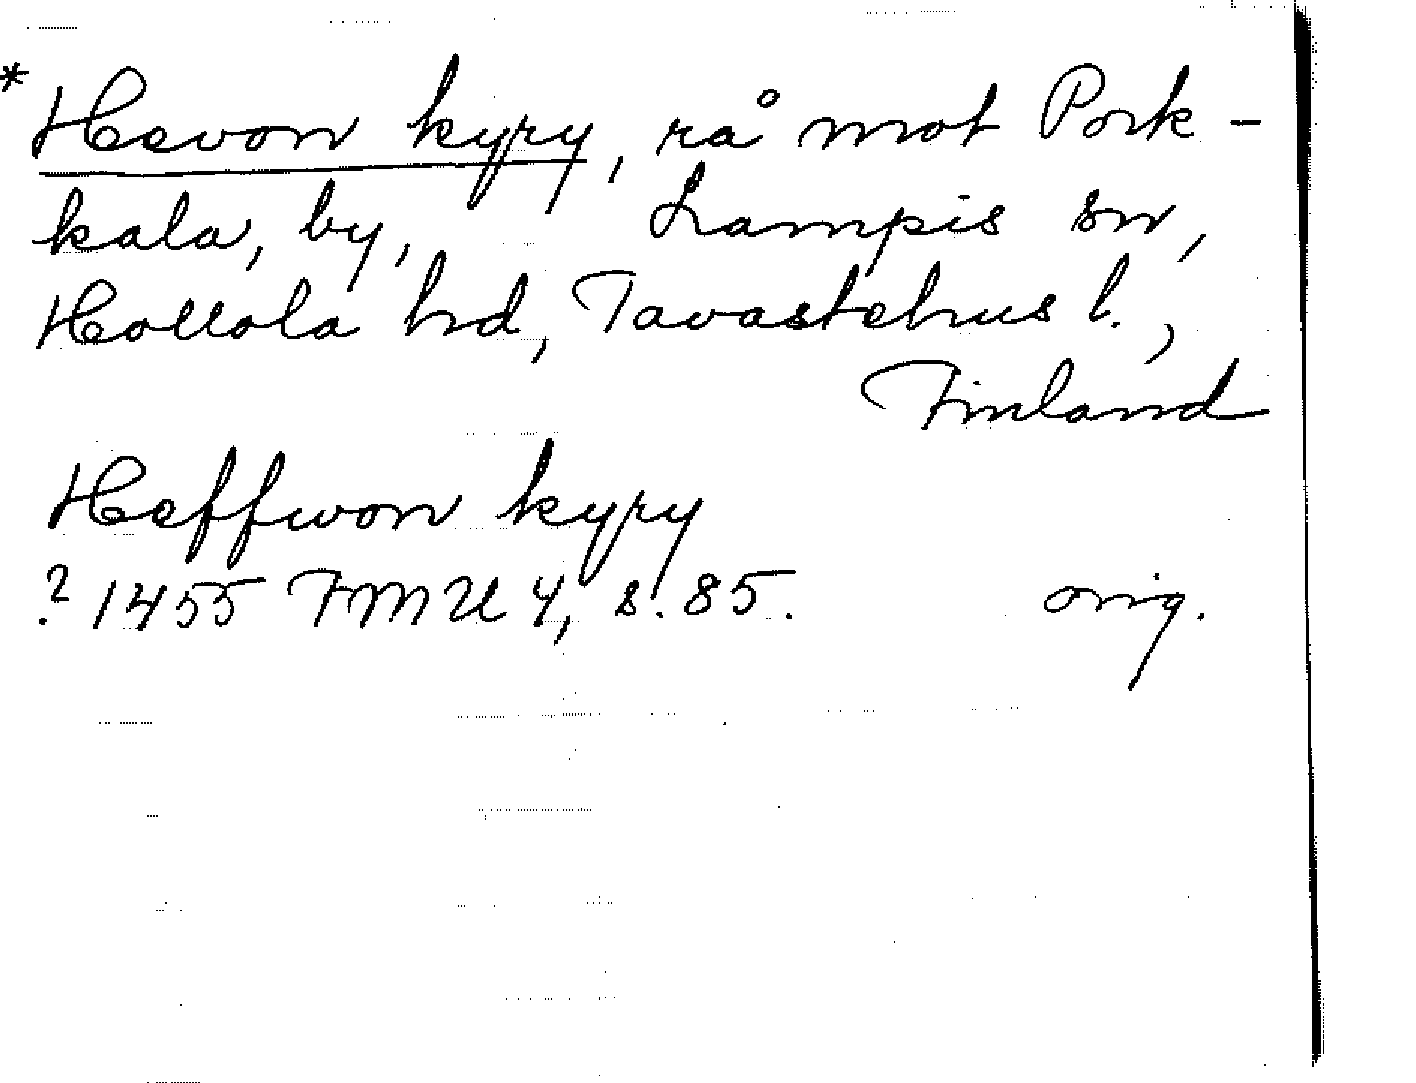 * Hevon kyry, rå mot Pork-
kala, by, Lampis sn,
Hollola hd, Tavastehus l.,
Finland
Heffwon kyry
? 1455 FMU 4, s. 85. orig.